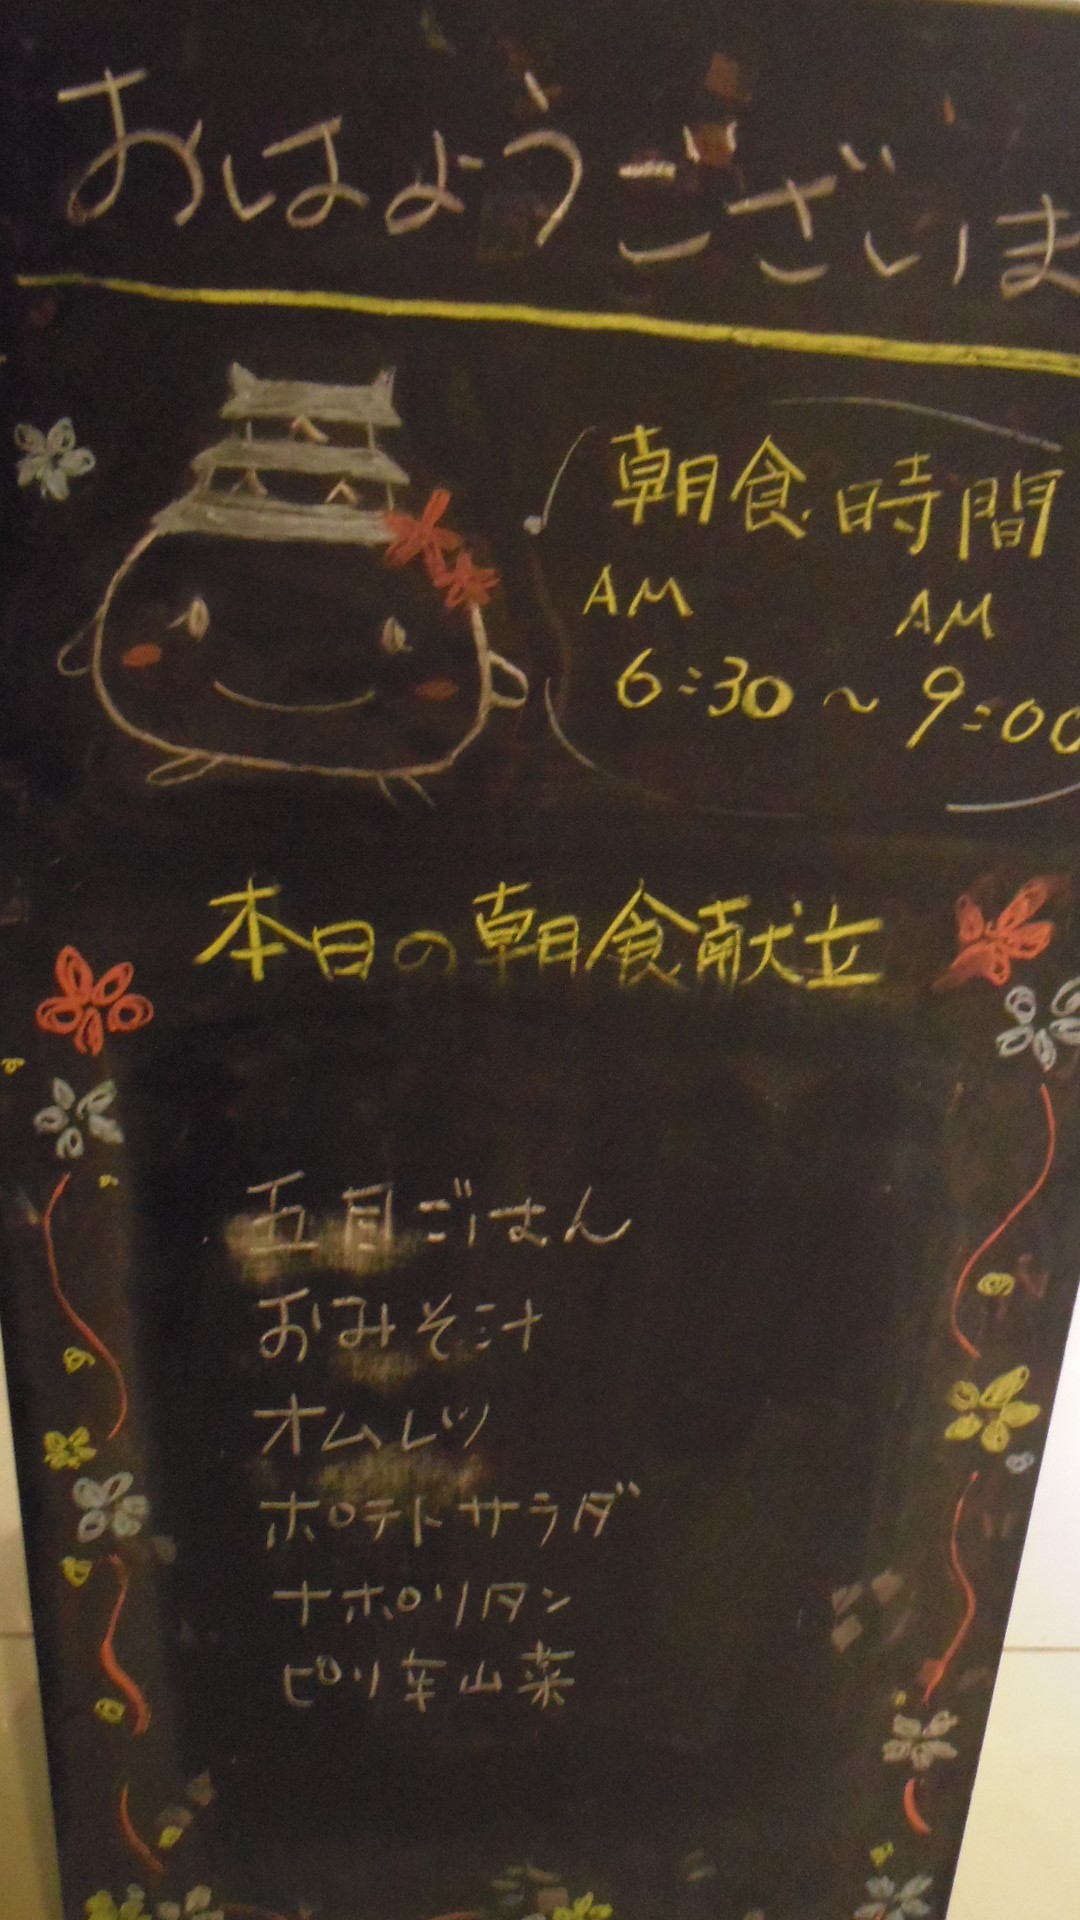 おはようございま
朝食時間
AM AM
6:30～9:00
本日の朝食献立
五目ごはん
おみそ汁
オムレツ
ポテトサラダ
ナポリタン
ピリ辛山菜